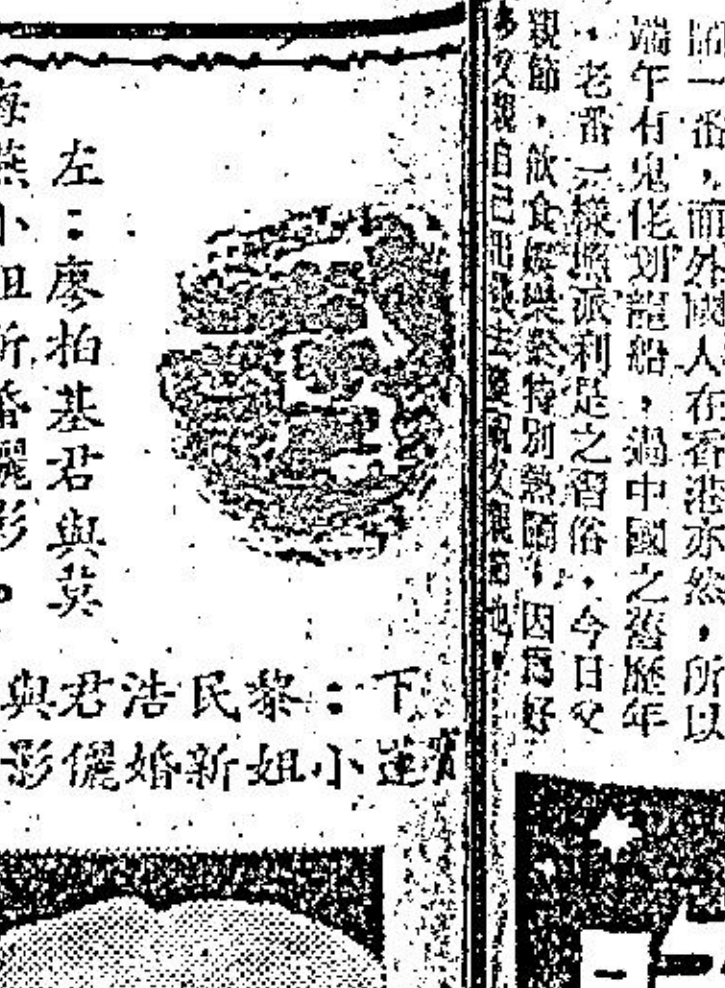 鬧一番，而外國人在香港亦然，所以
端午有鬼佬划龍船，過中國之舊歷年
，老番一樣照派利是之習俗，今日父
親節，飲食娛樂業特別熱鬧，因爲好
多父親自己出錢去慶祝父親節也，
左：廖柏基君與莫
海燕小姐新婚儷影。
下：黎民浩君與
蓮小姐新婚儷影